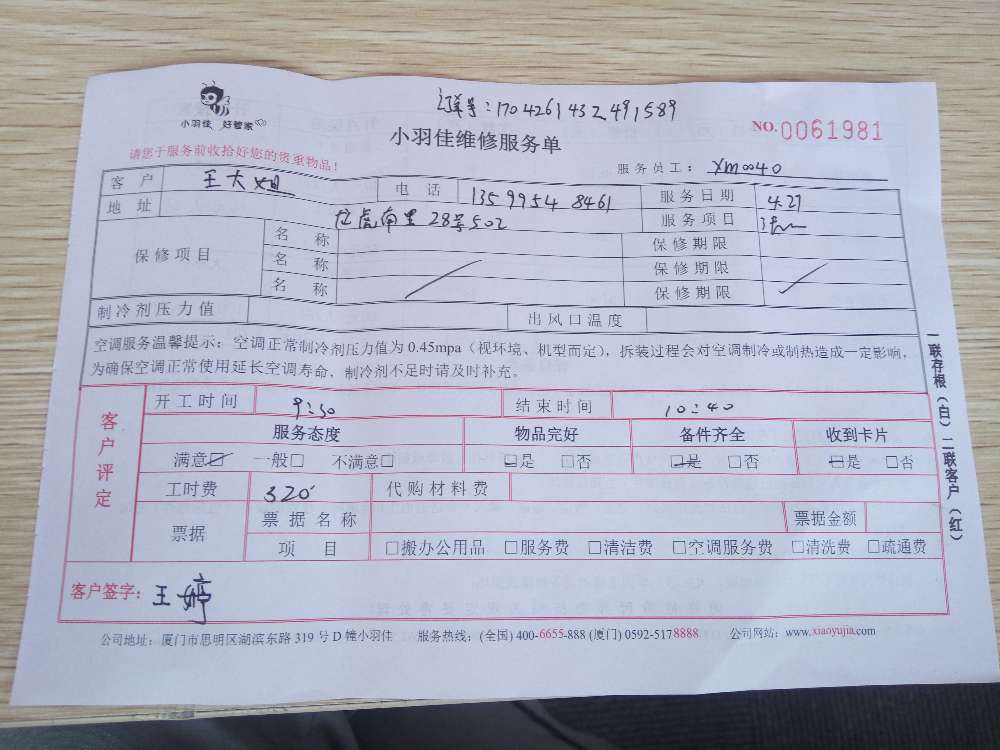 订单号:170426143249158９
小羽佳 好管家
小羽佳维修服务单
NO.0061981
请您于服务前收拾好您的贵重物品!
服务员工: XM0040
客户 王大姐 电话 13599548461 服务日期 4.27
地址 拉虎南里28号502 服务项目
保修项目 名称 保修期限
名称 保修期限
名称 保修期限
制冷剂压力值 出风口温度
空调服务温馨提示:空调正常制冷剂压力值为0.45mpa(视环境、机型而定),拆装过程会对空调制冷或制热造成一定影响,
为确保空调正常使用延长空调寿命,制冷剂不足时请及时补充。
客户评定
开工时间 9:30 结束时间 10:40
服务态度 物品完好 备件齐全 收到卡片
满意☑ 一般□ 不满意□ ☑是 □否 ☑是 □否 ☑是 □否
工时费 320 代购材料费
票据 票据名称 票据金额
项目 □搬办公用品 □服务费 □清洁费 □空调服务费 □清洗费 □疏通费
客户签字: 王婷
公司地址:厦门市思明区湖滨东路319号D幢小羽佳 服务热线:(全国)400-6655-888 (厦门)0592-5178888 公司网站:www.xiaoyujia.com
一联存根(白)二联客户(红)